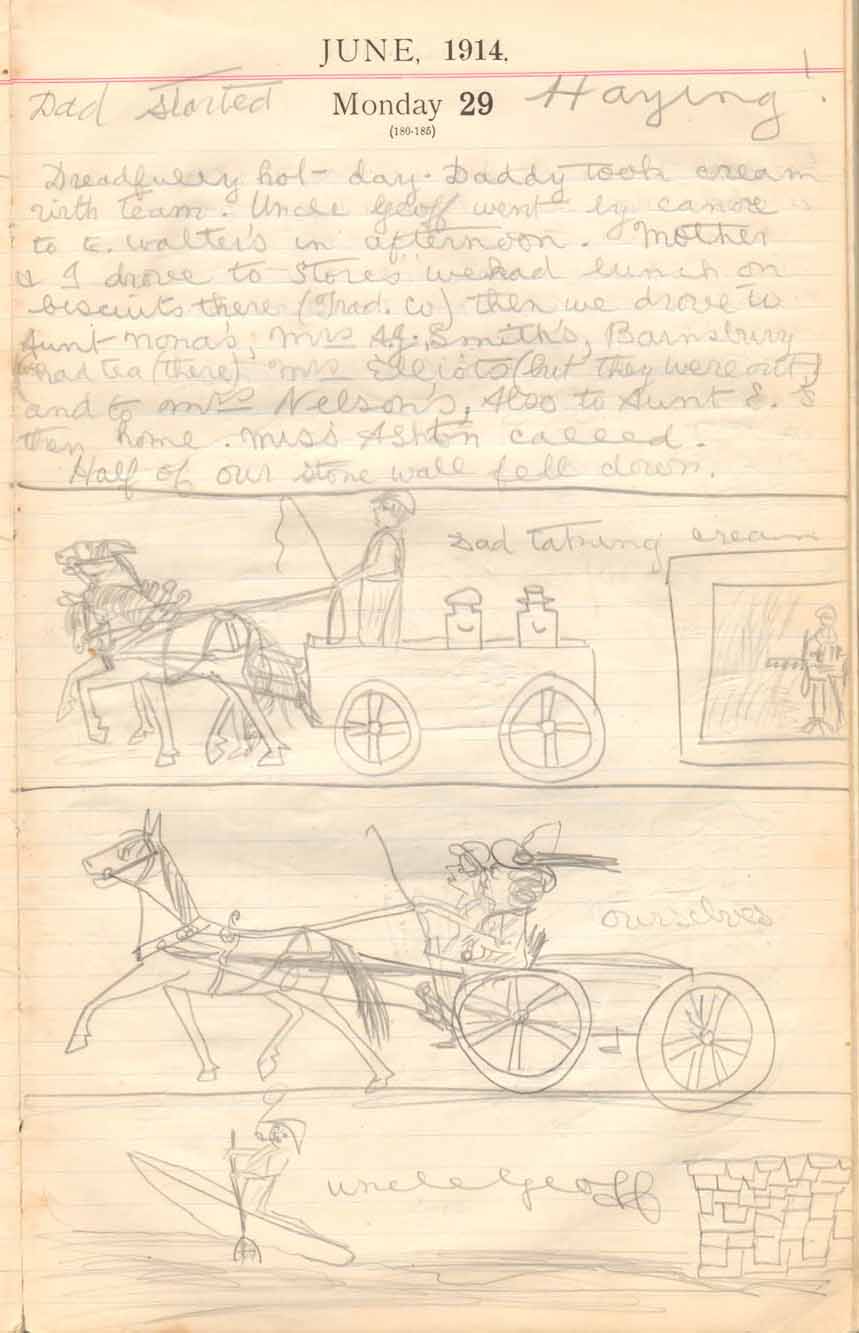 JUNE, 1914.
Dad started Monday 29 Haying!
(180-185)
Dreadfully hot day. Daddy took cream
with team. Uncle Geoff went by canoe
to E. Walter's in afternoon. Mother
& I drove to Stores we had lunch on
biscuits there (Trad. Co) then we drove to
Aunt Nona's, Mrs A.J. Smith's, Barnsbury
had tea (there) Mrs Elliots (but they were out)
and to Mrs Nelson's, Also to Aunt E.'s
then home. Miss Ashton called.
Half of our stone wall fell down.
Dad taking cream
ourselves
uncle Geoff